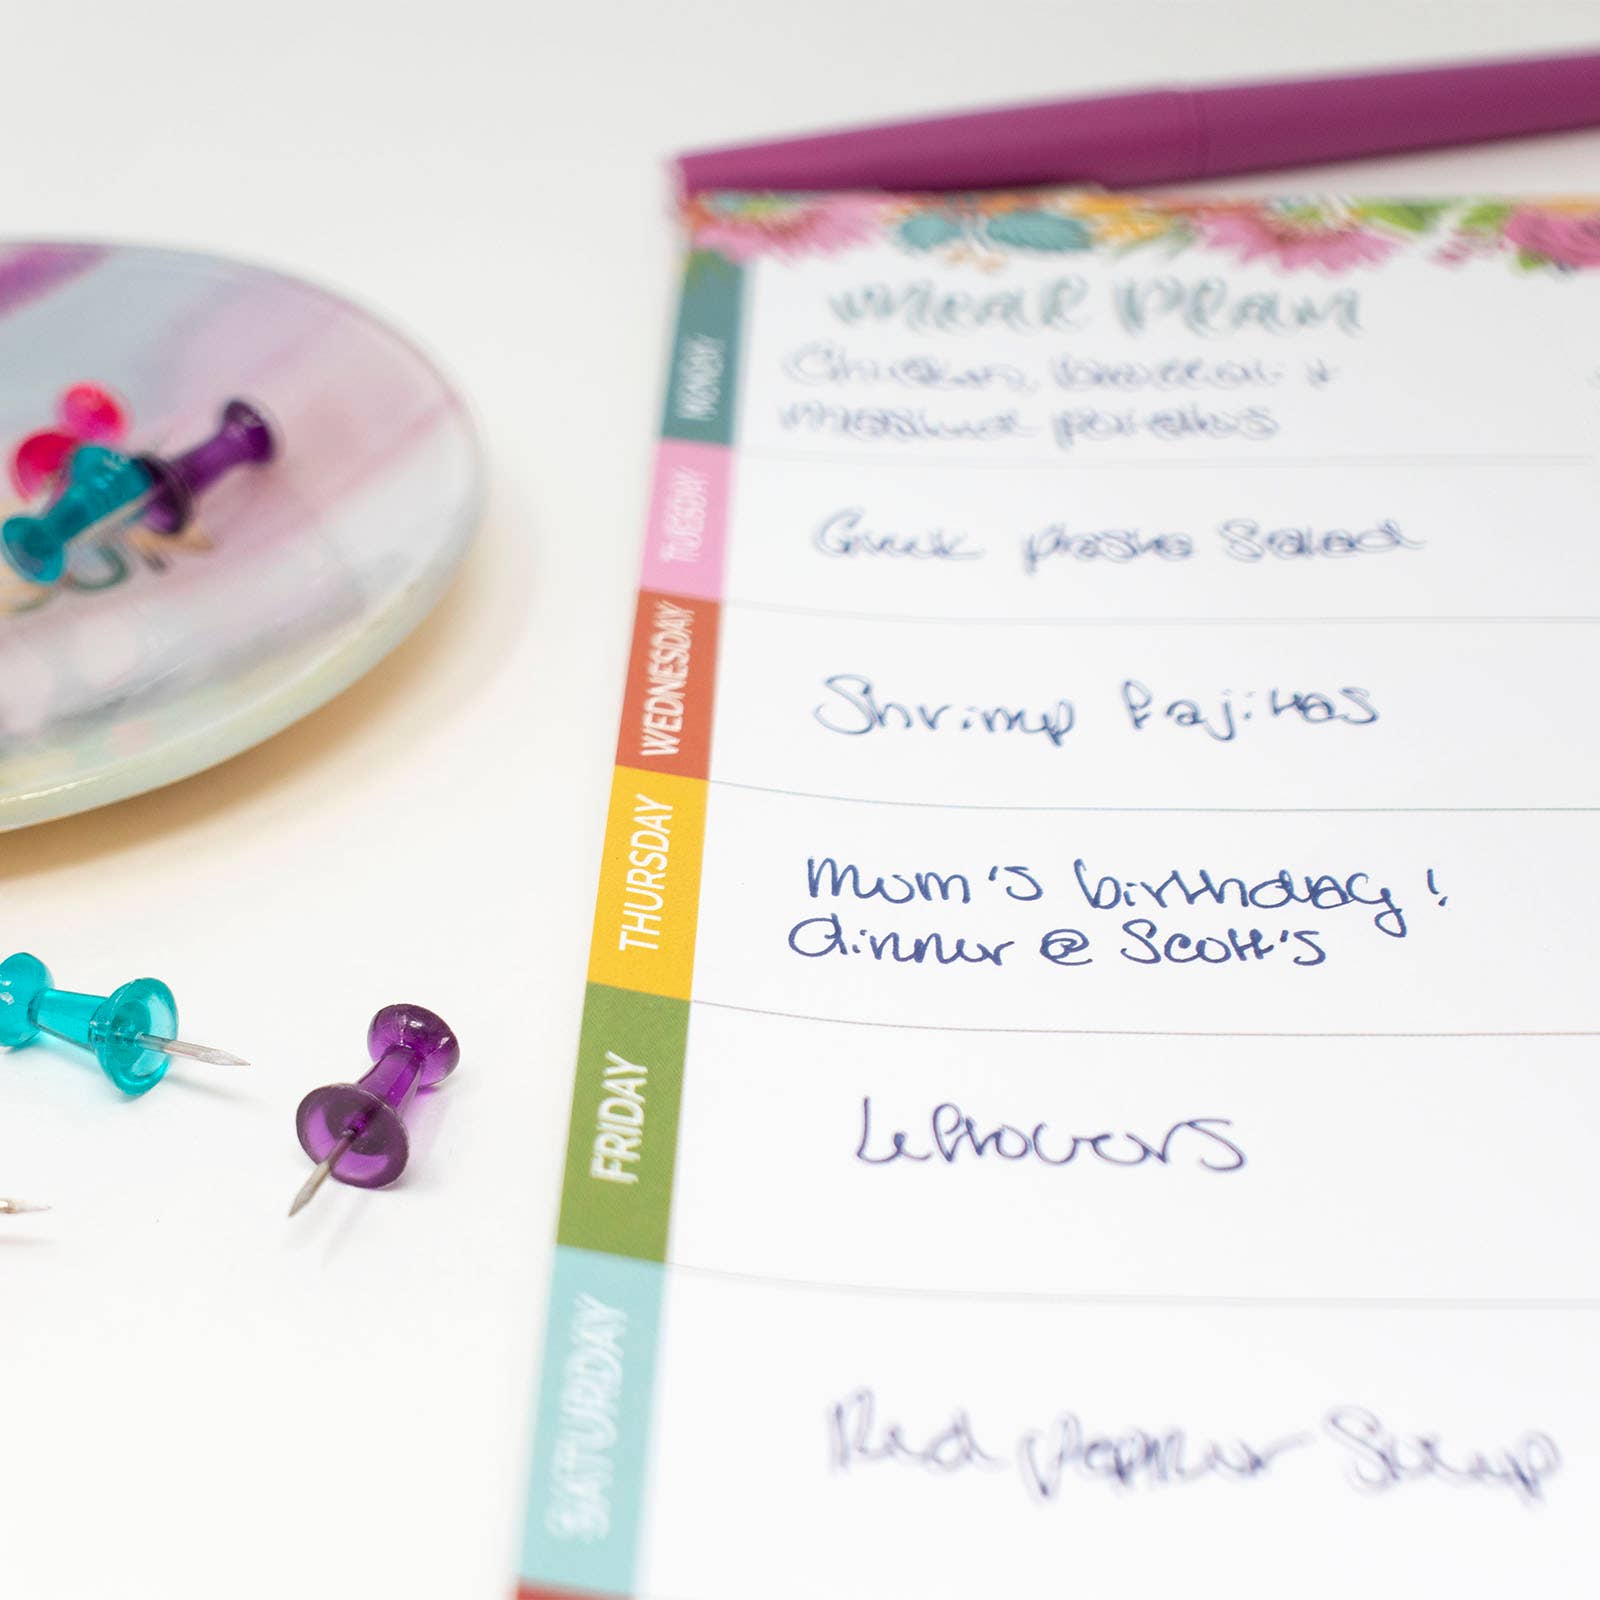 meal plan
MONDAY
Chicken, broccoli +
mashed potatoes
TUESDAY
Greek pasta Salad
WEDNESDAY
Shrimp fajitas
THURSDAY
Mom's birthday!
dinner @ Scott's
FRIDAY
Leftovers
SATURDAY
Red pepper Soup